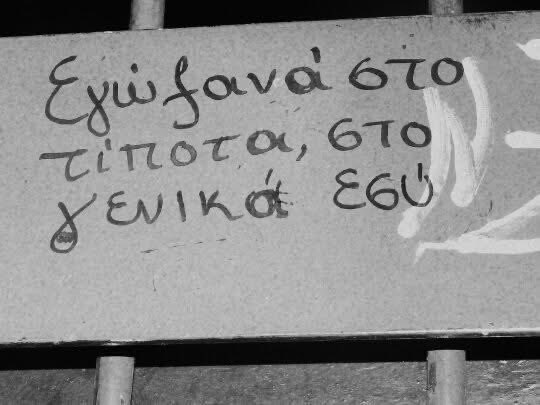 Εγώ ξανά στο
τίποτα, στο
γενικά εσύ